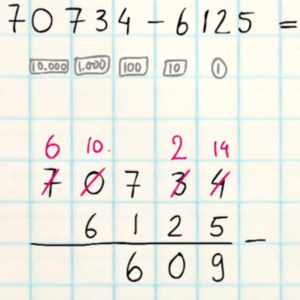 70734-6125 =
10.000 1.000 100 10 1
6 10. 2 14
7 0 7 3 4
6 1 2 5 -
6 0 9